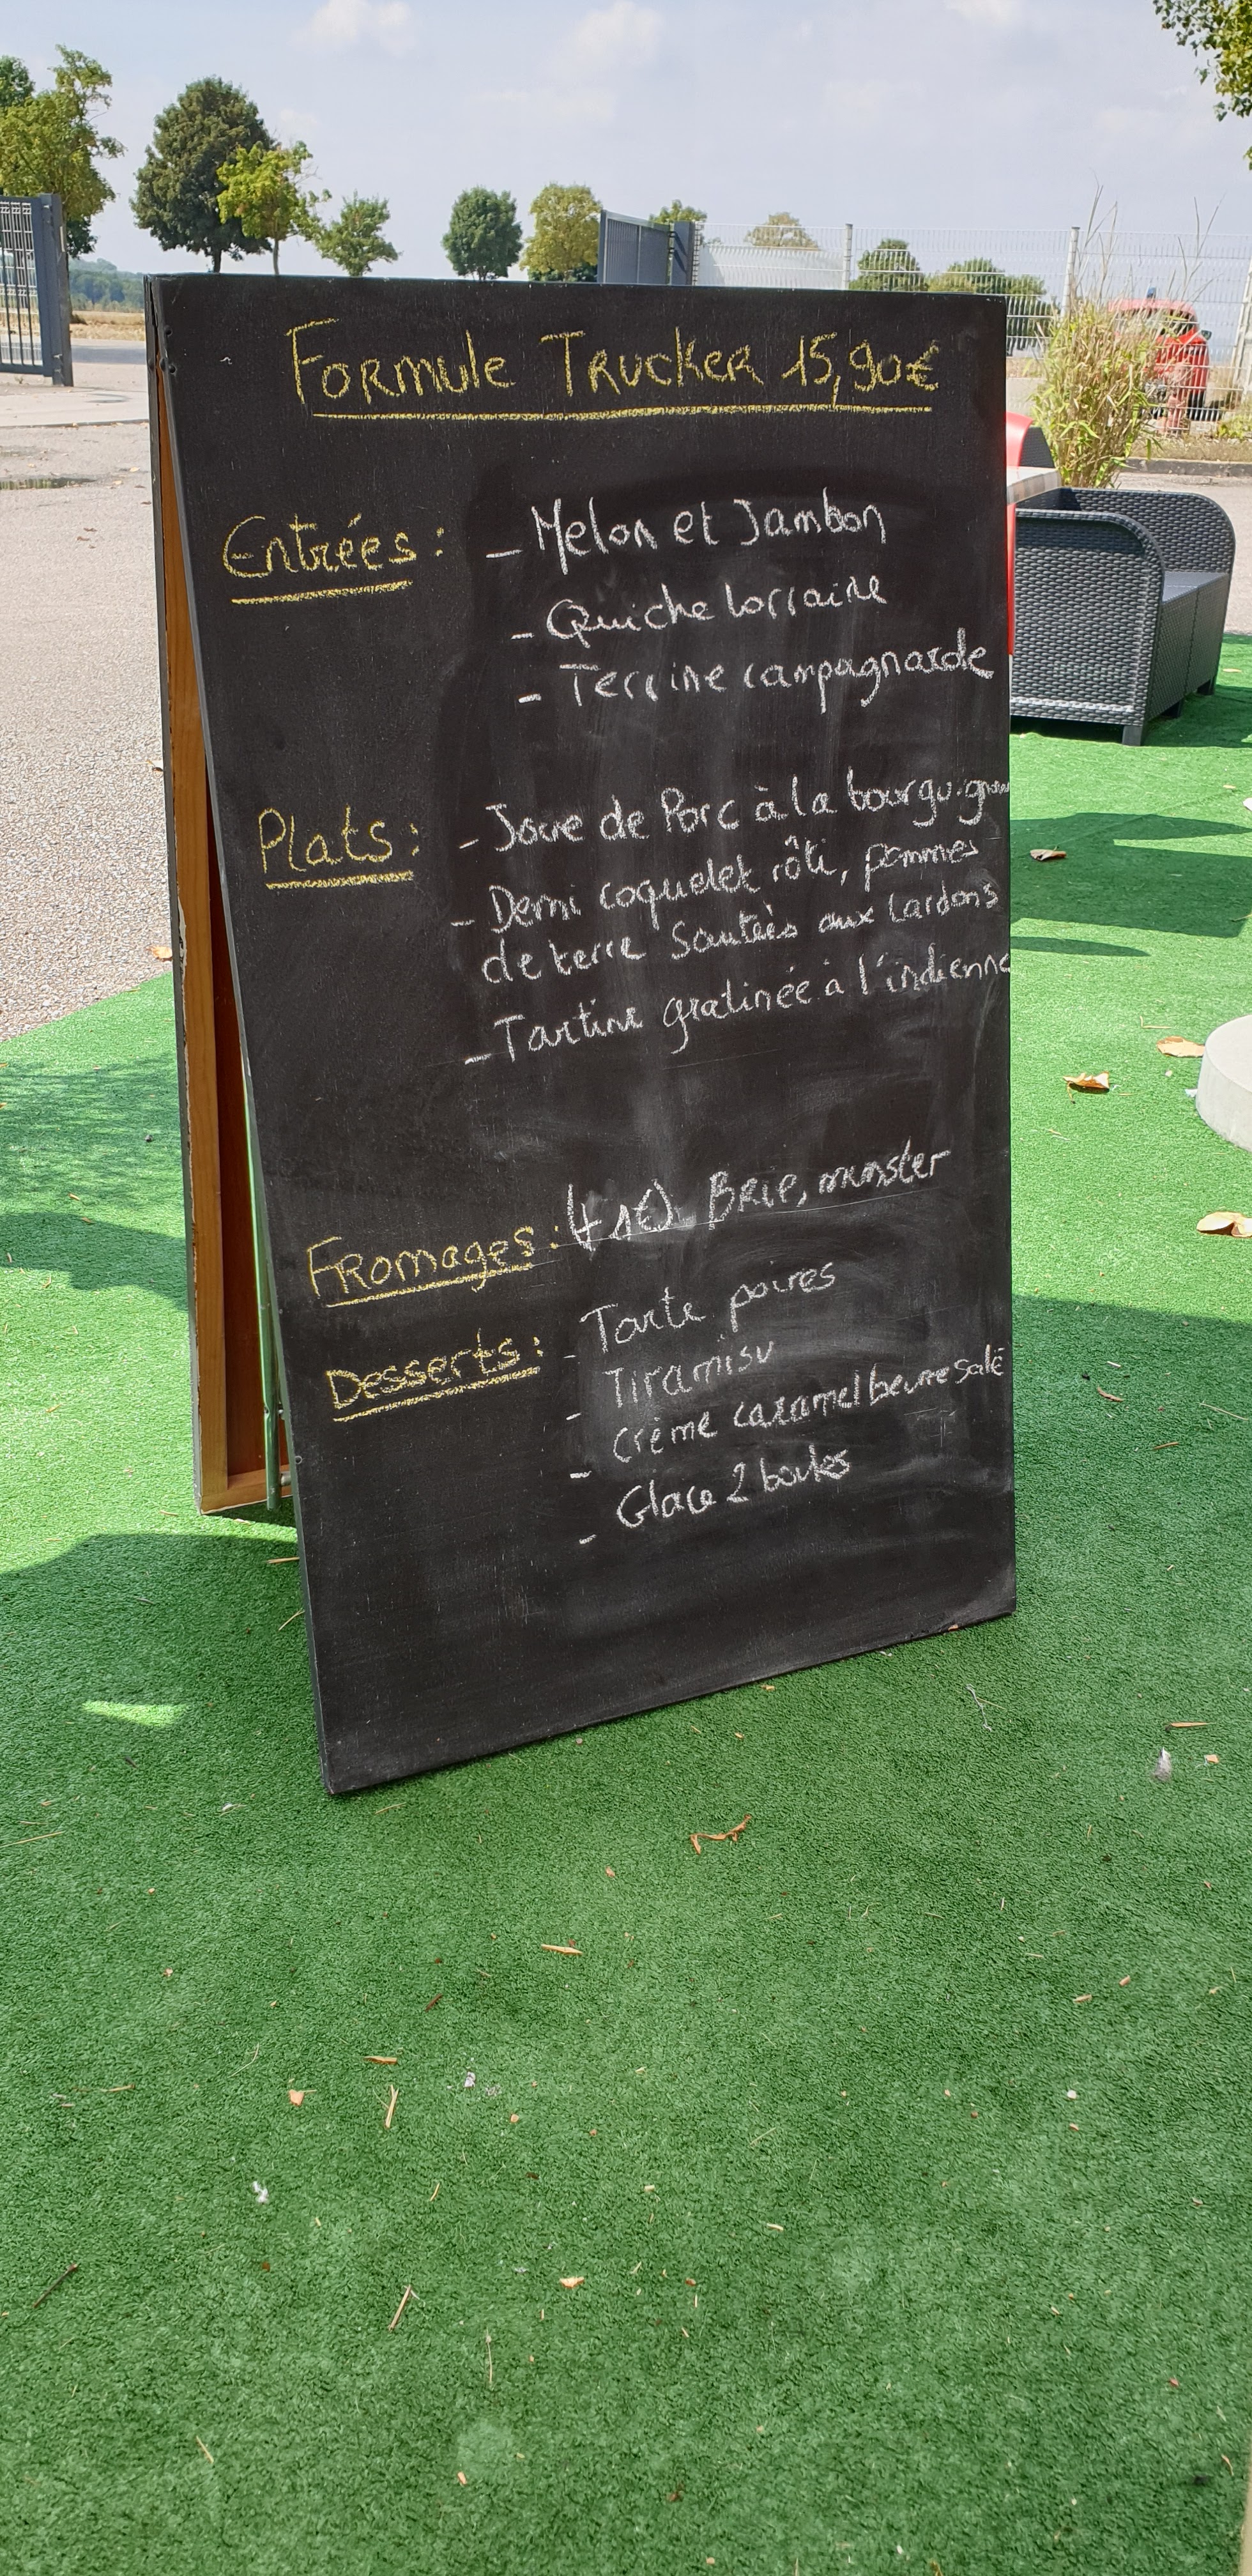 Formule Trucker 15,90€
Entrées : - Melon et Jambon
- Quiche lorraine
- Terrine campagnarde
Plats : - Joue de Porc à la bourguignon
- Demi coquelet rôti, pommes
de terre Sautées aux Lardons
- Tartine gratinée à l'indienne
Fromages : (+1€) Brie, munster
Desserts : - Tarte poires
- Tiramisu
- Crème caramel beurre salé
- Glace 2 boules